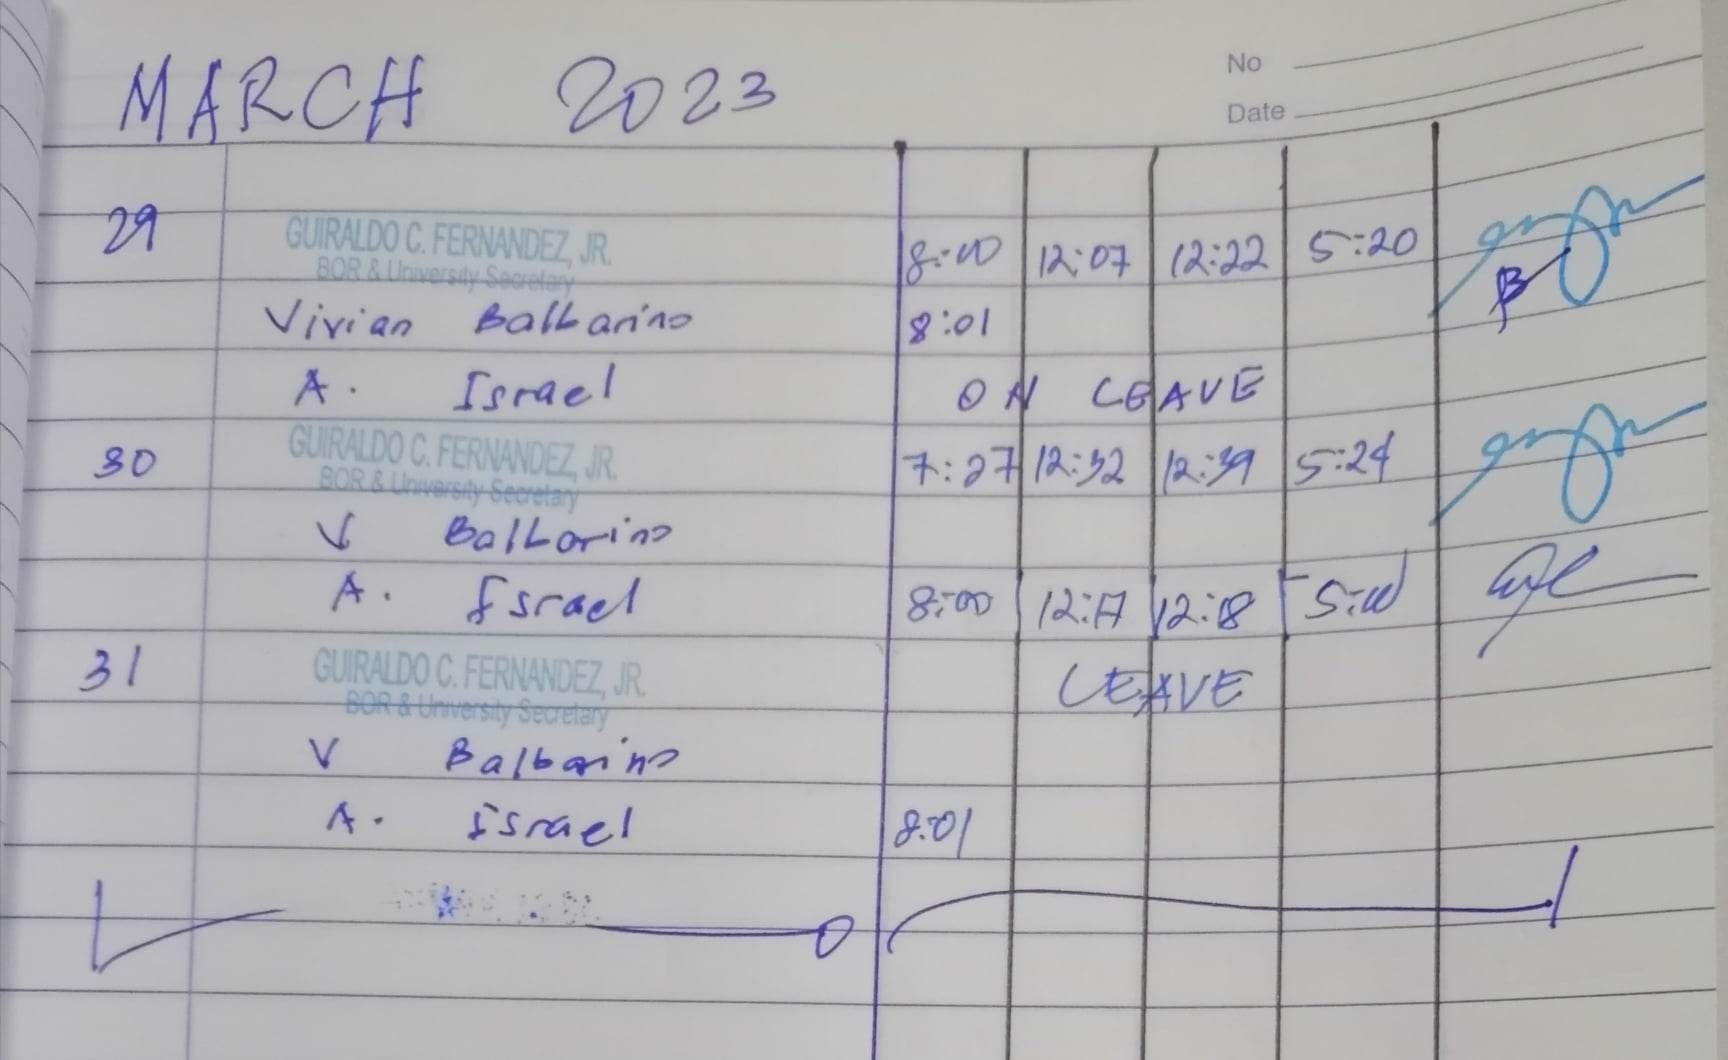 No
MARCH 2023
Date
29 GUIRALDO C. FERNANDEZ, JR. 8:00 12:07 12:22 5:20
BOR & University Secretary
Vivian Balbarino 8:01
A. Israel ON LEAVE
30 GUIRALDO C. FERNANDEZ, JR. 7:27 12:32 12:39 5:24
BOR & University Secretary
V Balbarino
A. Israel 8:00 12:17 12:18 5:00
31 GUIRALDO C. FERNANDEZ, JR. LEAVE
BOR & University Secretary
V Balbarino
A. Israel 8:01